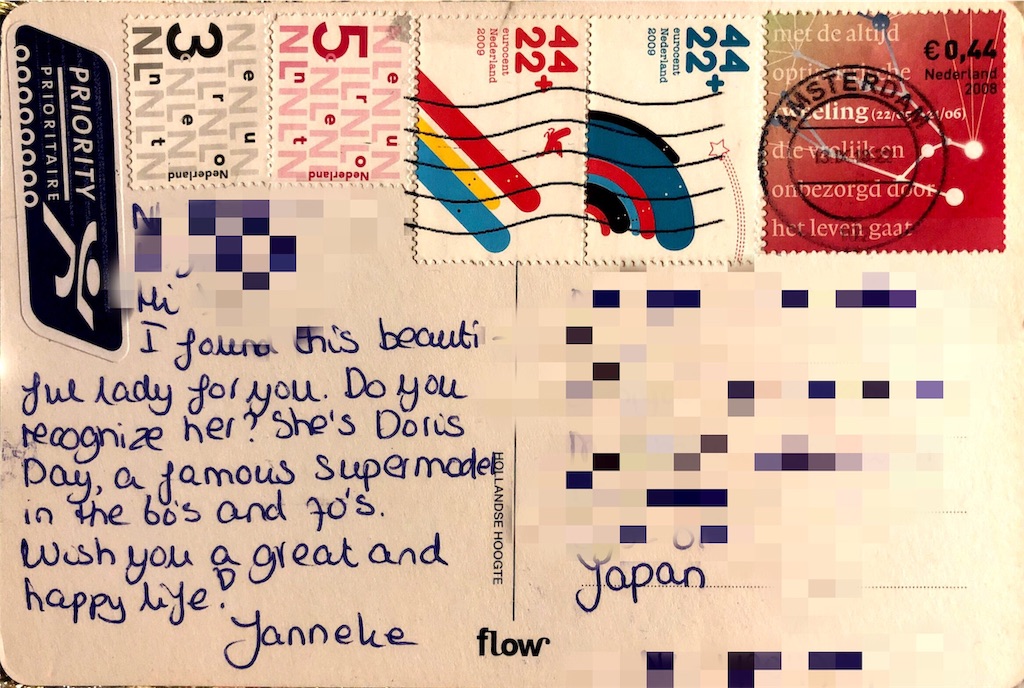 PRIORITY
PRIORITAIRE
3
euro
cent
Nederland
5
euro
cent
Nederland
44
22+
eurocent
Nederland
2009
44
22+
eurocent
Nederland
2009
met de altijd
€ 0,44
Nederland
2008
die vrolijk en
onbezorgd door
het leven gaat
AMSTERDAM
Hi
I found this beauti
ful lady for you. Do you
recognize her? She's Doris
Day, a famous supermodel
in the 60's and 70's.
Wish you a great and
happy life.
Janneke
HOLLANDSE HOOGTE
flow
Japan